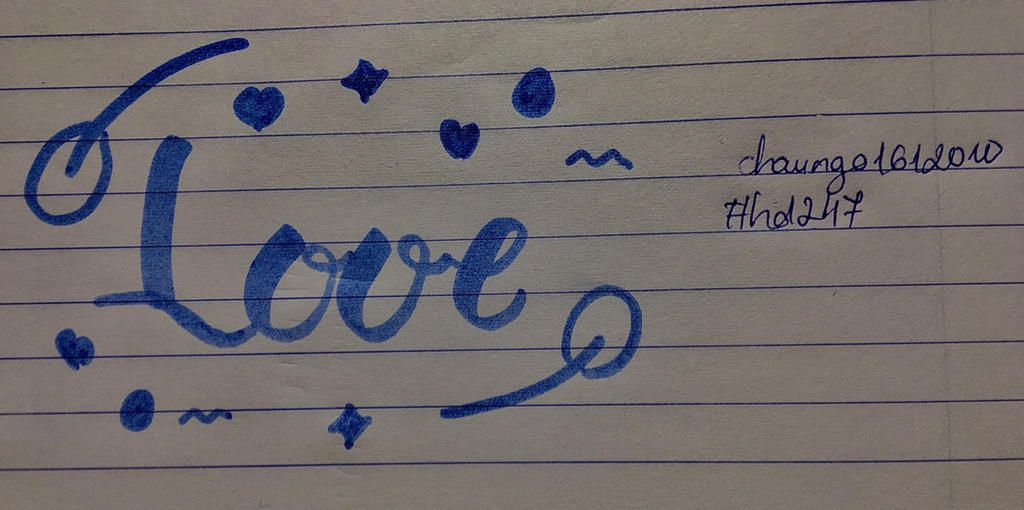 Love
chaungo1612010
#hd247